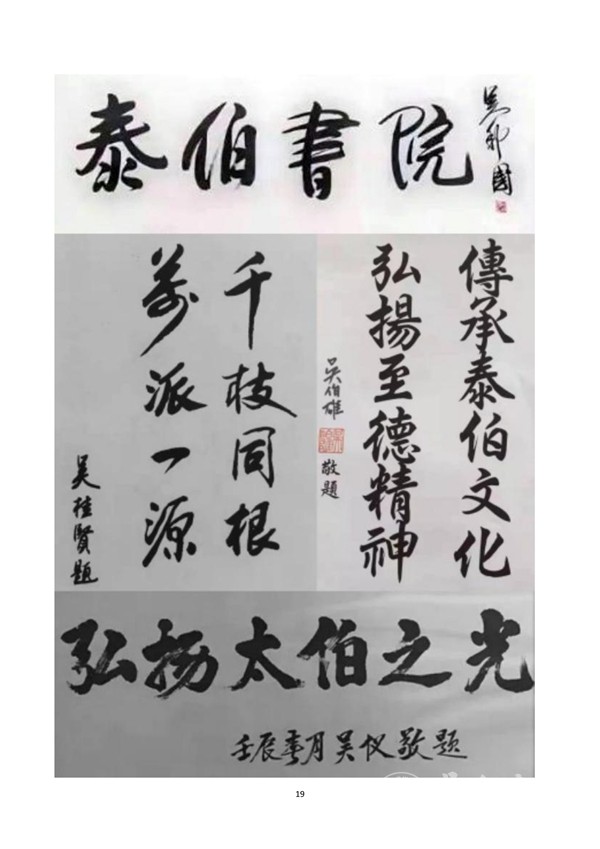 泰伯書院
吳邦國
傳承泰伯文化
弘揚至德精神
吳伯雄
敬題
千枝同根
萬派一源
吴桂賢題
弘扬太伯之光
壬辰春月吴仪敬題
19